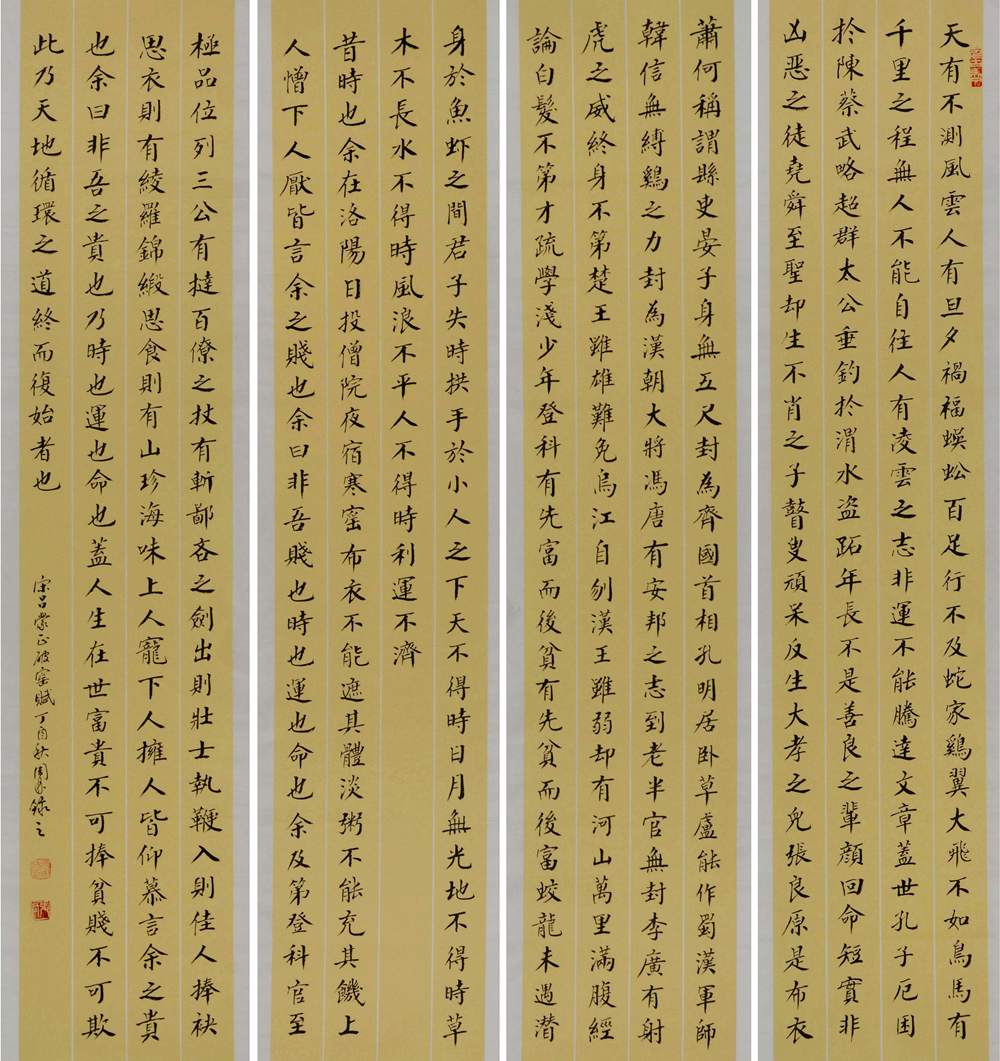 天有不測風雲人有旦夕禍福蜈蚣百足行不及蛇家鷄翼大飛不如鳥馬有
千里之程無人不能自往人有凌雲之志非運不能騰達文章蓋世孔子厄困
扵陳蔡武略超群太公垂釣扵渭水盜跖年長不是善良之輩顔回命短實非
凶惡之徒堯舜至聖却生不肖之子瞽叟頑呆反生大孝之兒張良原是布衣
蕭何稱謂縣吏晏子身無五尺封為齊國首相孔明居卧草廬能作蜀漢軍師
韓信無縛鷄之力封為漢朝大將馮唐有安邦之志到老半官無封李廣有射
虎之威終身不第楚王雖雄難免烏江自刎漢王雖弱却有河山萬里滿腹經
論白髮不第才疏學淺少年登科有先富而後貧有先貧而後富蛟龍未遇潛
身於魚虾之間君子失時拱手於小人之下天不得時日月無光地不得時草
木不長水不得時風浪不平人不得時利運不濟
昔時也余在洛陽日投僧院夜宿寒窰布衣不能遮其體淡粥不能充其饑上
人憎下人厭皆言余之賤也余曰非吾賤也時也運也命也余及第登科官至
極品位列三公有撻百僚之杖有斬鄙吝之劍出則壯士執鞭入則佳人捧袂
思衣則有綾羅錦緞思食則有山珍海味上人寵下人擁人皆仰慕言余之貴
也余曰非吾之貴也乃時也運也命也蓋人生在世富貴不可捧貧賤不可欺
此乃天地循環之道終而復始者也
宋吕蒙正破窰賦丁酉秋國錄之